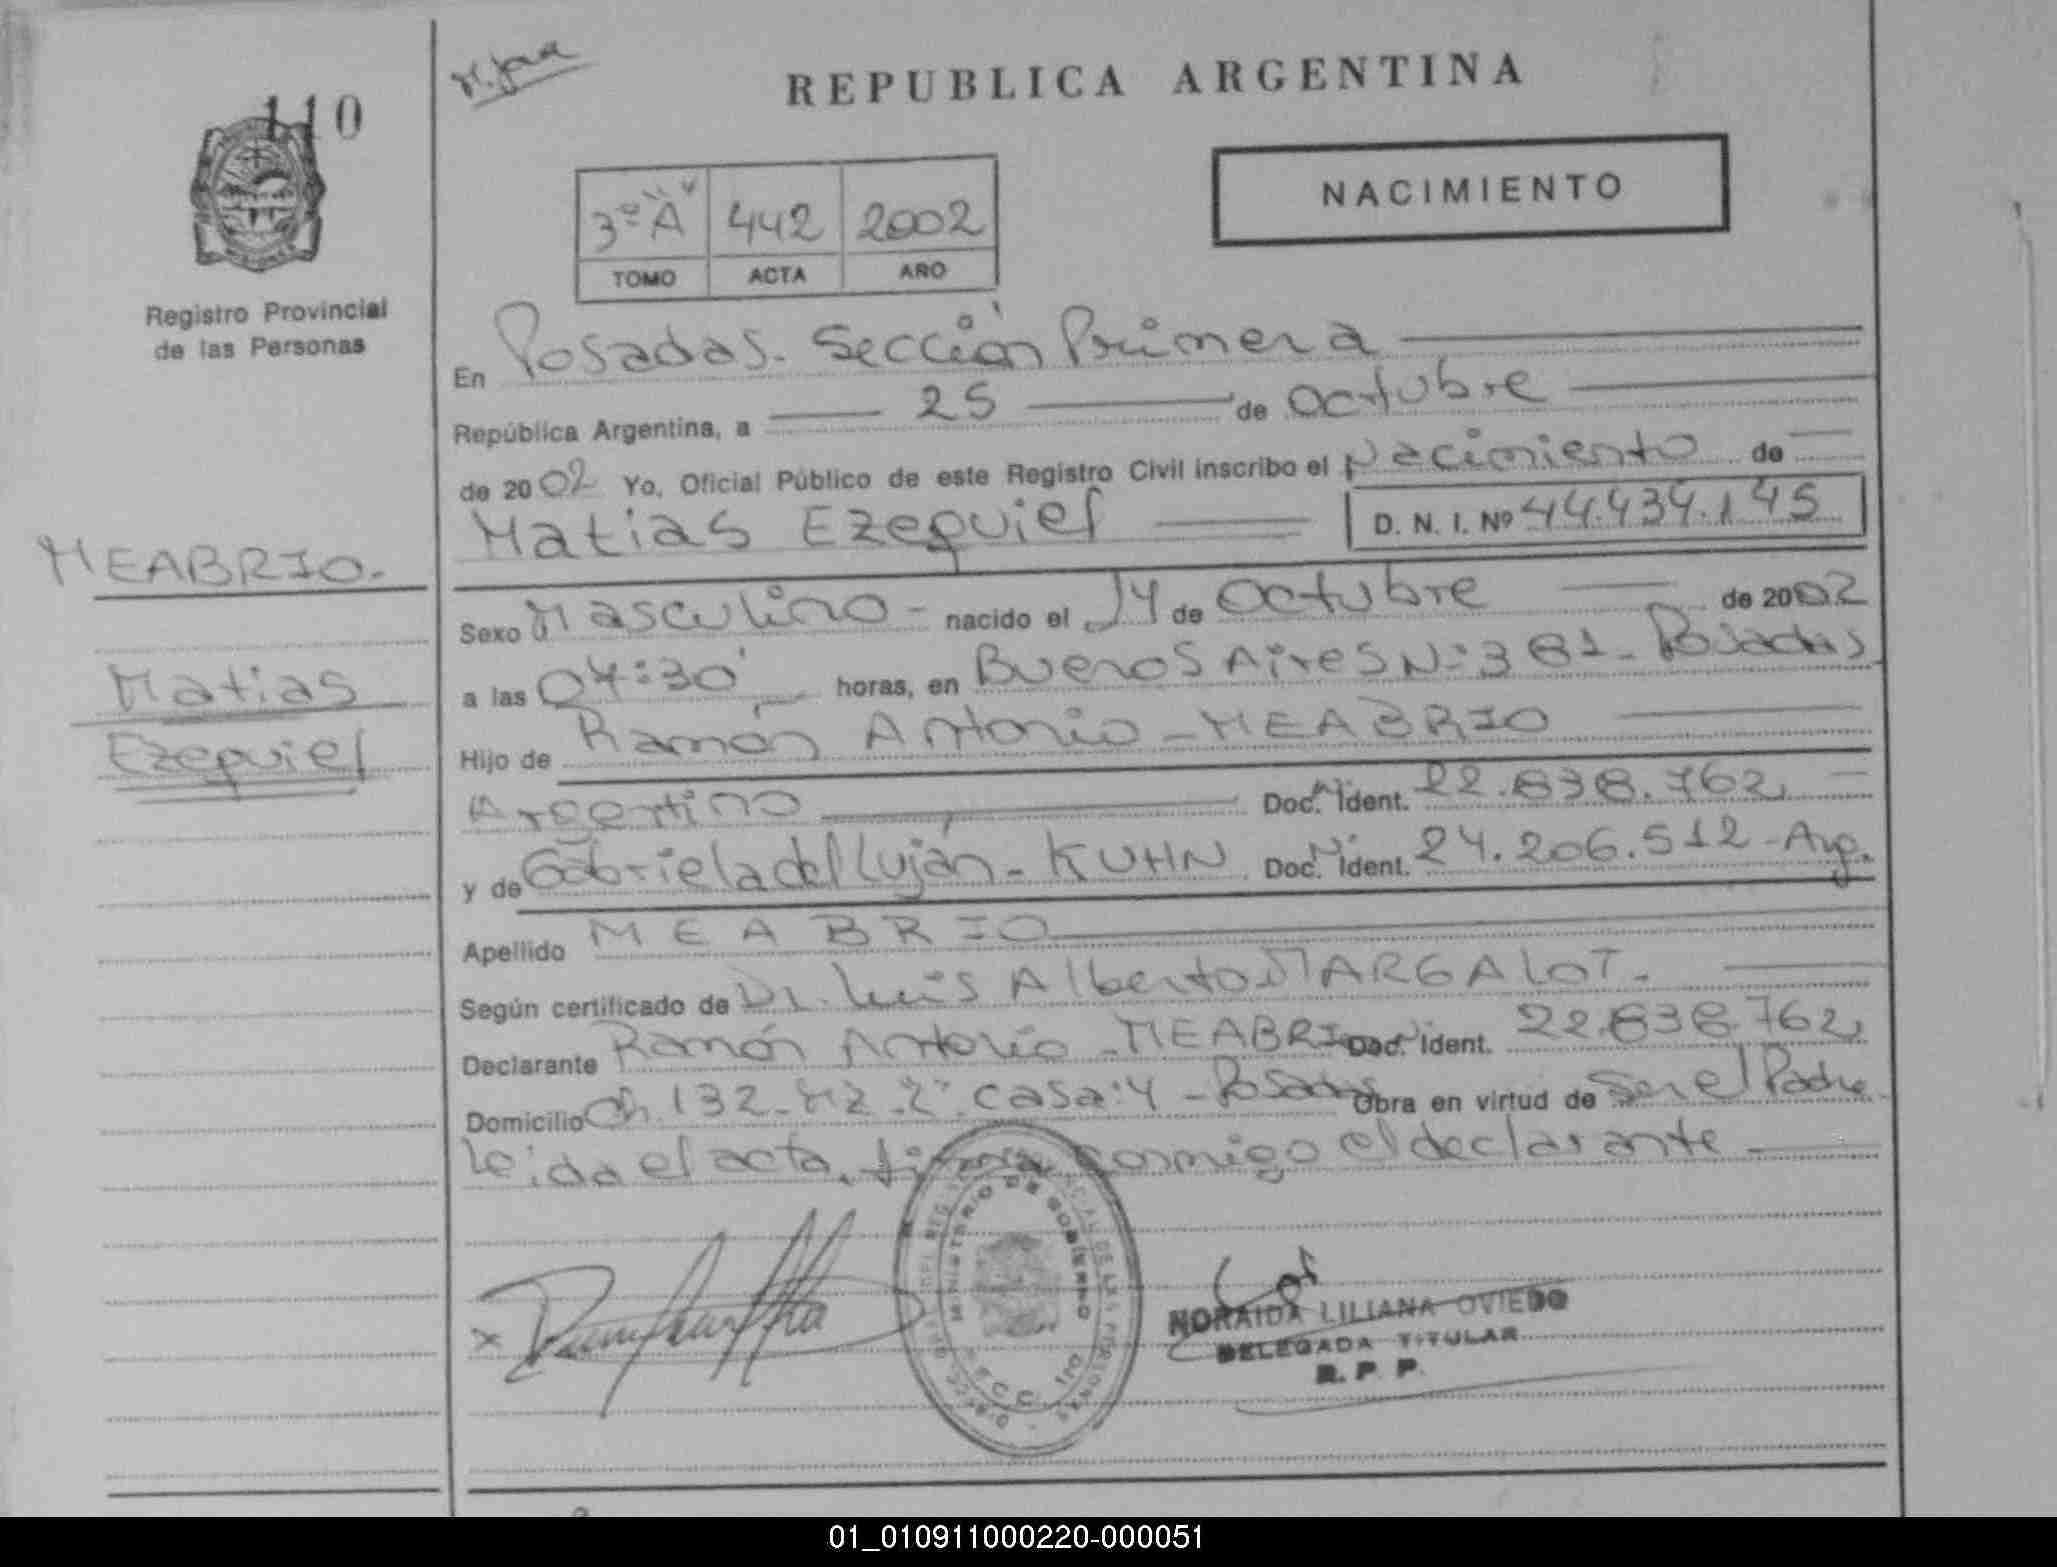 110
REPUBLICA ARGENTINA
NACIMIENTO
3º "A" 442 2002
TOMO ACTA AÑO
Registro Provincial
de las Personas
En Posadas. Sección Primera
República Argentina, a 25 de Octubre
de 2002 Yo, Oficial Público de este Registro Civil inscribo el Nacimiento de
Matias Ezequiel D. N. I. Nº 44.434.145
MEABRIO.
Matias
Ezequiel
Sexo Masculino - nacido el 14 de Octubre de 2002
a las 04:30' horas, en Buenos Aires Nº 381 - Posadas
Hijo de Ramón Antonio - MEABRIO
Argentino Doc. Ident. 22.838.762
y de Gabriela del Luján - KUHN Doc. Ident. 24.206.512 - Arg.
Apellido MEABRIO
Según certificado de Dr. Luis Alberto MARGALOT.
Declarante Ramón Antonio - MEABRIO Doc. Ident. 22.838.762
Domicilio Ch. 132 - Mz. 2 casa: 4 - Posadas Obra en virtud de Ser el Padre
Leida el acta, firma conmigo el declarante
MINISTERIO DE GOBIERNO
NORAIDA LILIANA OVIEDO
DELEGADA TITULAR
R. P. P.
01_010911000220-000051